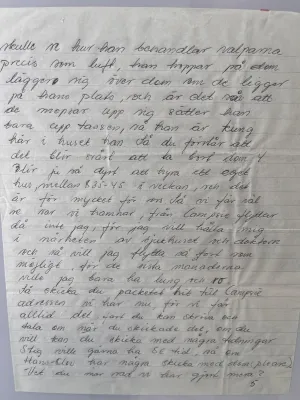 skulle se hur han behandlar valparna
precis som luft, han trippar på dem
lägger sig över dem om de ligger
på hans plats, och är det så att
de morrar upp sig sätter han
bara upp tassen, så han är kung
här i huset han. Så du förstår att
det blir svårt att ta bort dem.
Blir ju så dyrt att hyra ett eget
hus, mellan 35-45 i veckan, och det
är för mycket för oss. Så vi får väl
se när vi hamnar, från flyttar
då inte jag, för jag vill hålla mig
i närheten av sjukhuset och doktorn
och så vill jag flytta så fort som
möjligt, för de sista månaderna
ville jag bara ha lugn och ro.
Så skicka du packetet hit till
adressen vi har nu för vi får
alltid det, var du kan skriva och
tala om när du skickade det, om du
vill kan du skicka med några tidningar
Stig ville gärna ha Se till, så om
har några skicka med dem, please.
Vet du när vad vi har gjort mera?
5